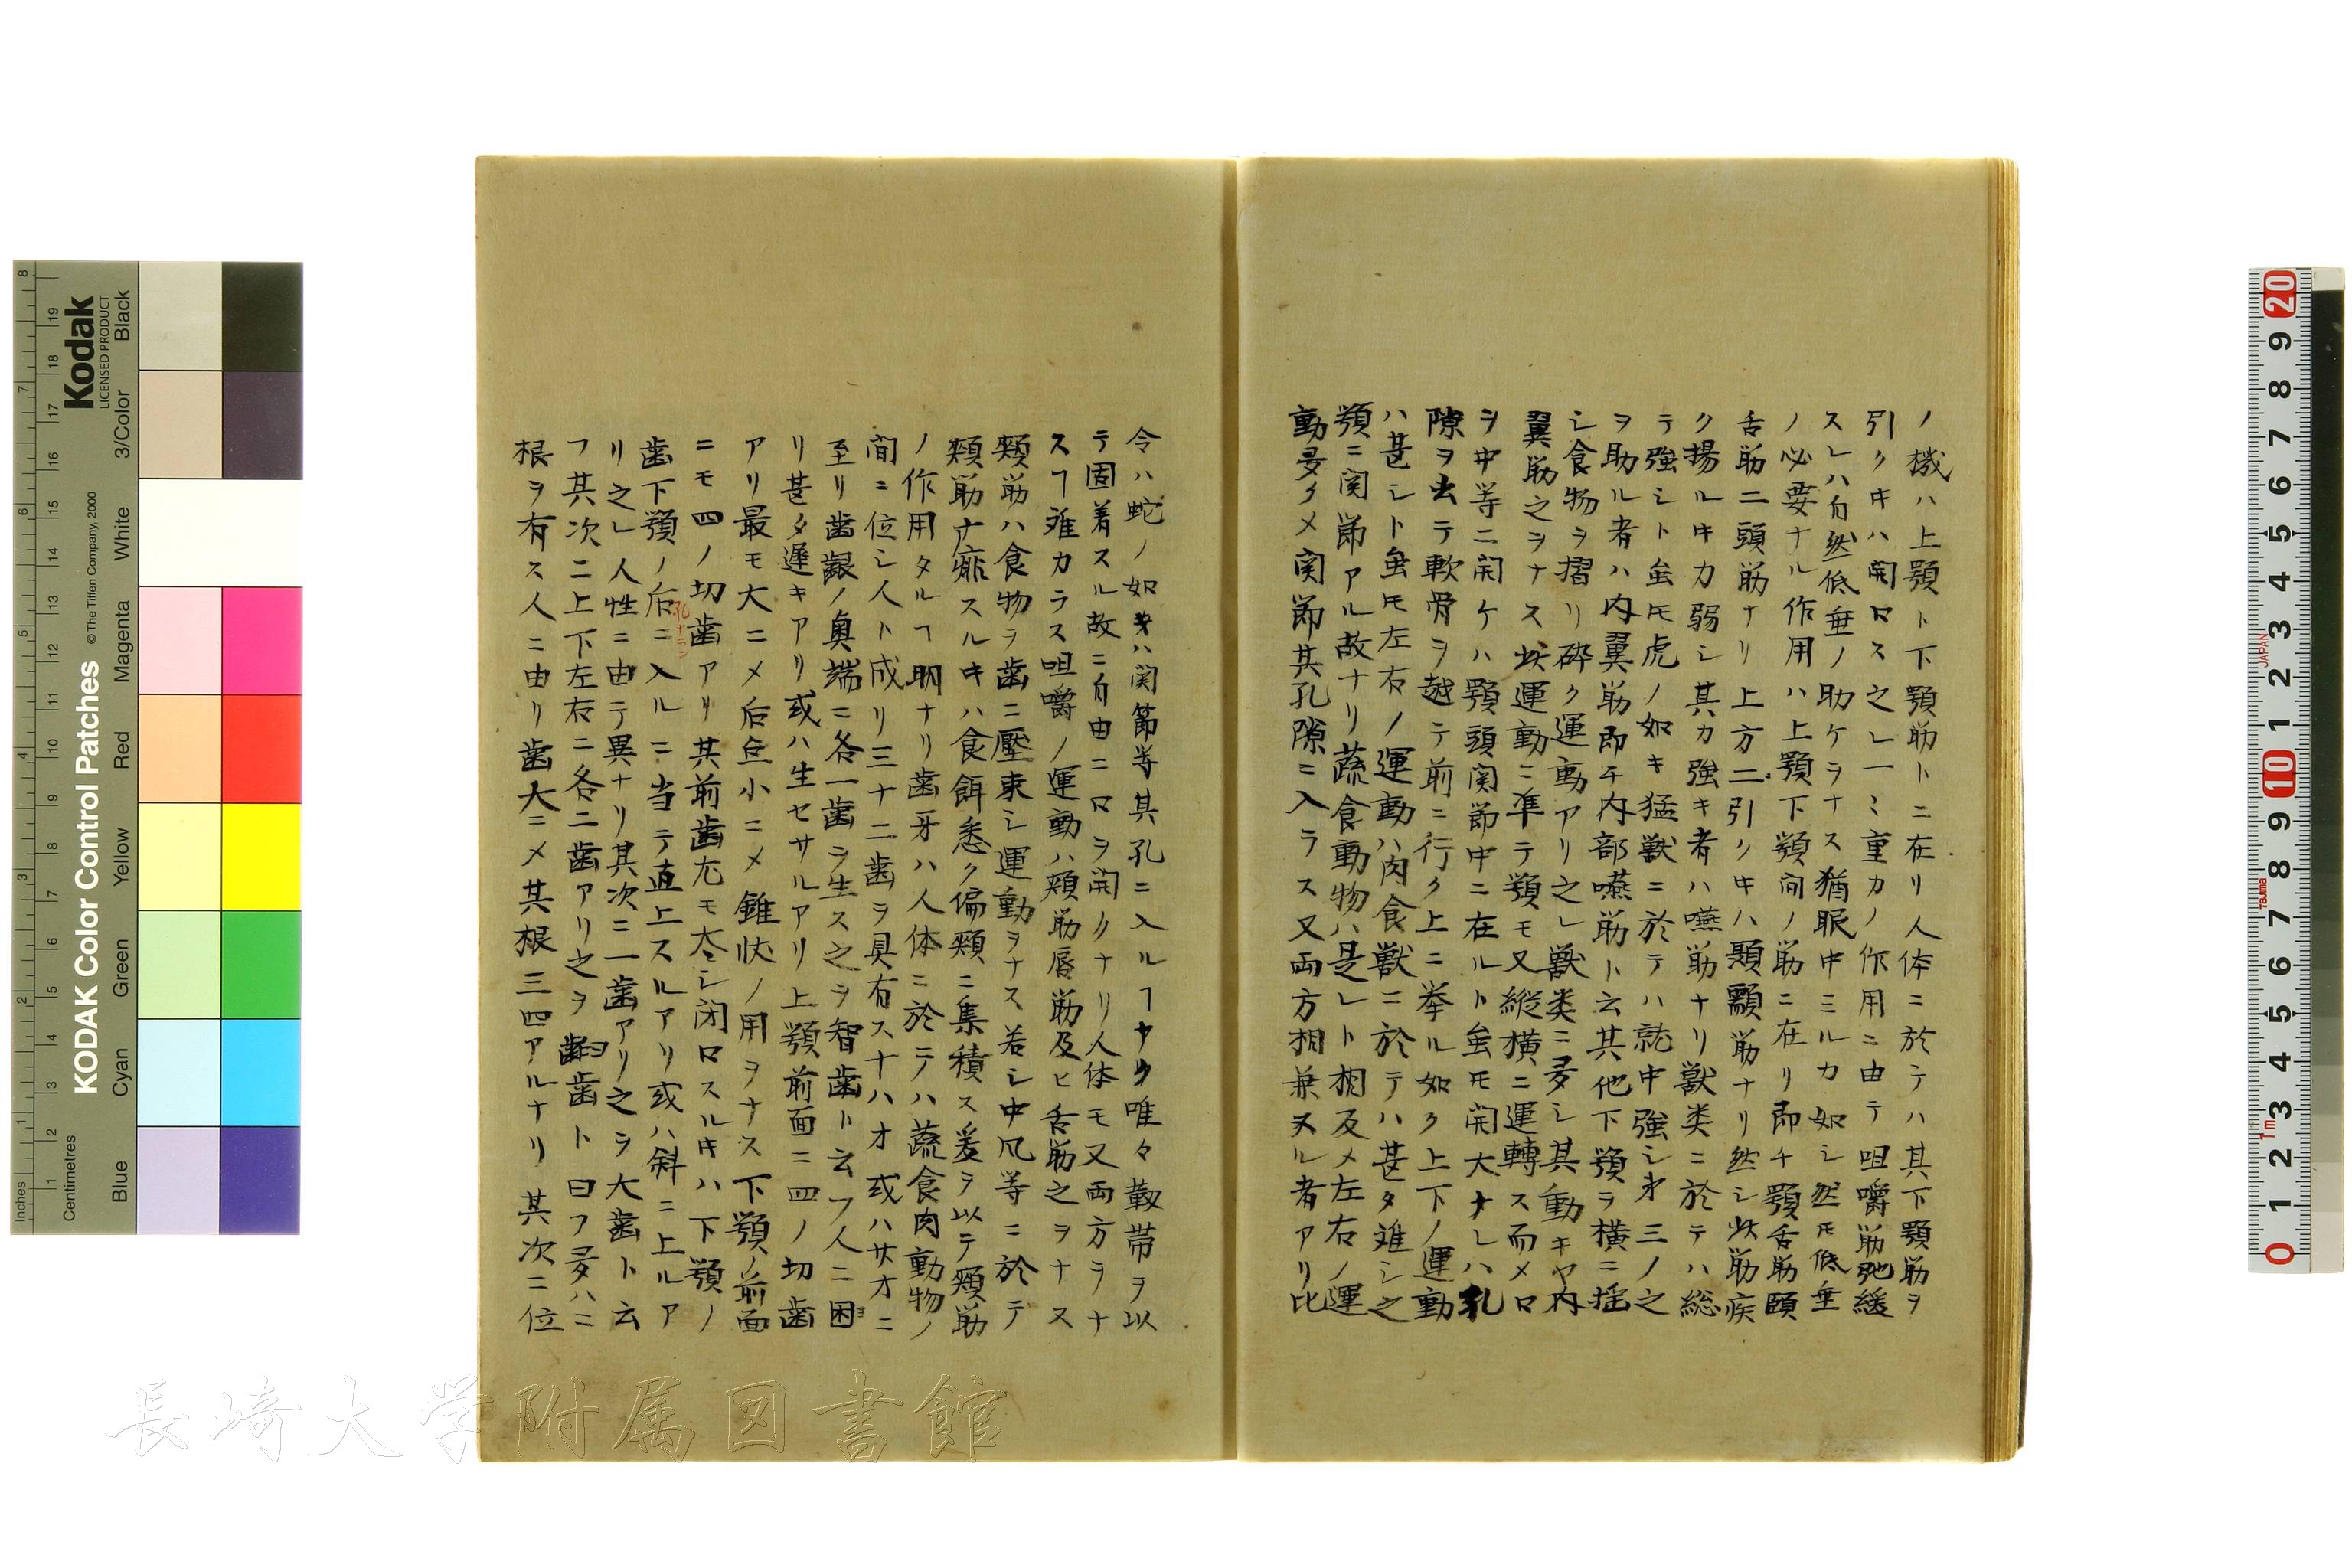 ノ機ハ上顎ト下顎筋トニ在リ人体ニ於テハ其下顎筋ヲ
引クキハ開口ス之レ一ミ重力ノ作用ニ由テ咀嚼筋弛緩
スレハ自然低垂ノ助ケヲナス猶眠中ミルカ如シ然𪜈低垂
ノ必要ナル作用ハ上顎下顎间ノ筋ニ在リ即チ顎舌筋頤
舌筋二頭筋ナリ上方ニ引クキハ顳顬筋ナリ然シ此筋疾
ク揚ルキカ弱シ其力強キ者ハ嚥筋ナリ獣类ニ於テハ総
テ強シト虽𪜈虎ノ如キ猛獣ニ於テハ就中強シ𛂦三ノ之
ヲ助ル者ハ内翼筋即チ内部嚥筋ト云其他下顎ヲ横ニ揺
シ食物ヲ摺リ砕ク運動アリ之レ獣类ニ多シ其動キヤ内
翼筋之ヲナス此運動ニ準テ顎モ又縦横ニ運轉ス而メ口
ヲ中等ニ開ケハ顎頭関節中ニ在ルト虽𪜈開大ナレハ孔
隙ヲ出テ軟骨ヲ越テ前ニ行ク上ニ挙ル如ク上下ノ運動
ハ甚シト虽𪜈左右ノ運動ハ肉食獣ニ於テハ甚タ难シ之
顎ニ関節アル故ナリ蔬食動物ハ是レト相反メ左右ノ運
動多クメ関節其孔隙ニ入ラス又両方相兼ヌル者アリ比
令ハ蛇ノ如キハ関節等其孔ニ入ルヿナク唯々靱帯ヲ以
テ固着スル故ニ自由ニ口ヲ開クナリ人体モ又両方ヲナ
スヿ难カラス咀嚼ノ運動ハ頬筋唇筋及ヒ舌筋之ヲナス
頬筋ハ食物ヲ歯ニ壓束シ運動ヲナス若シ中风等ニ於テ
頬筋ナ痱スルキハ食餌悉ク偏頬ニ集積ス爰ヲ以テ頬筋
ノ作用タルヿ明ナリ歯牙ハ人体ニ於テハ蔬食肉動物ノ
间ニ位シ人ト成リ三十二歯ヲ具有ス十八才或ハ廾才ニ
至リ歯齦ノ奥端ニ各一歯ヲ生ス之ヲ智歯ト云フ人ニ因
ヨ
リ甚タ遲キアリ或ハ生セサルアリ上顎前面ニ四ノ切歯
アリ最モ大ニメ后面小ニメ錐状ノ用ヲナス下顎ノ前面
ニモ四ノ切歯アリ其前歯尤モ大ニシ閉口スルキハ下顎ノ
孔ナラン
歯下顎ノ后ニ入ルニ当テ直上スルアリ或ハ斜ニ上ルア
リ之レ人性ニ由テ異ナリ其次ニ一歯アリ之ヲ大歯ト云
フ其次ニ上下左右ニ各二歯アリ之ヲ齣歯ト曰フ多ハ二
根ヲ有ス人ニ由リ歯大ニメ其根三四アルナリ其次ニ位
長崎大学附属図書館
Kodak
LICENSED PRODUCT
KODAK Color Control Patches
© The Tiffen Company, 2000
Inches
Centimetres
Blue
Cyan
Green
Yellow
Red
Magenta
White
3/Color
Black
JAPAN
Tajima